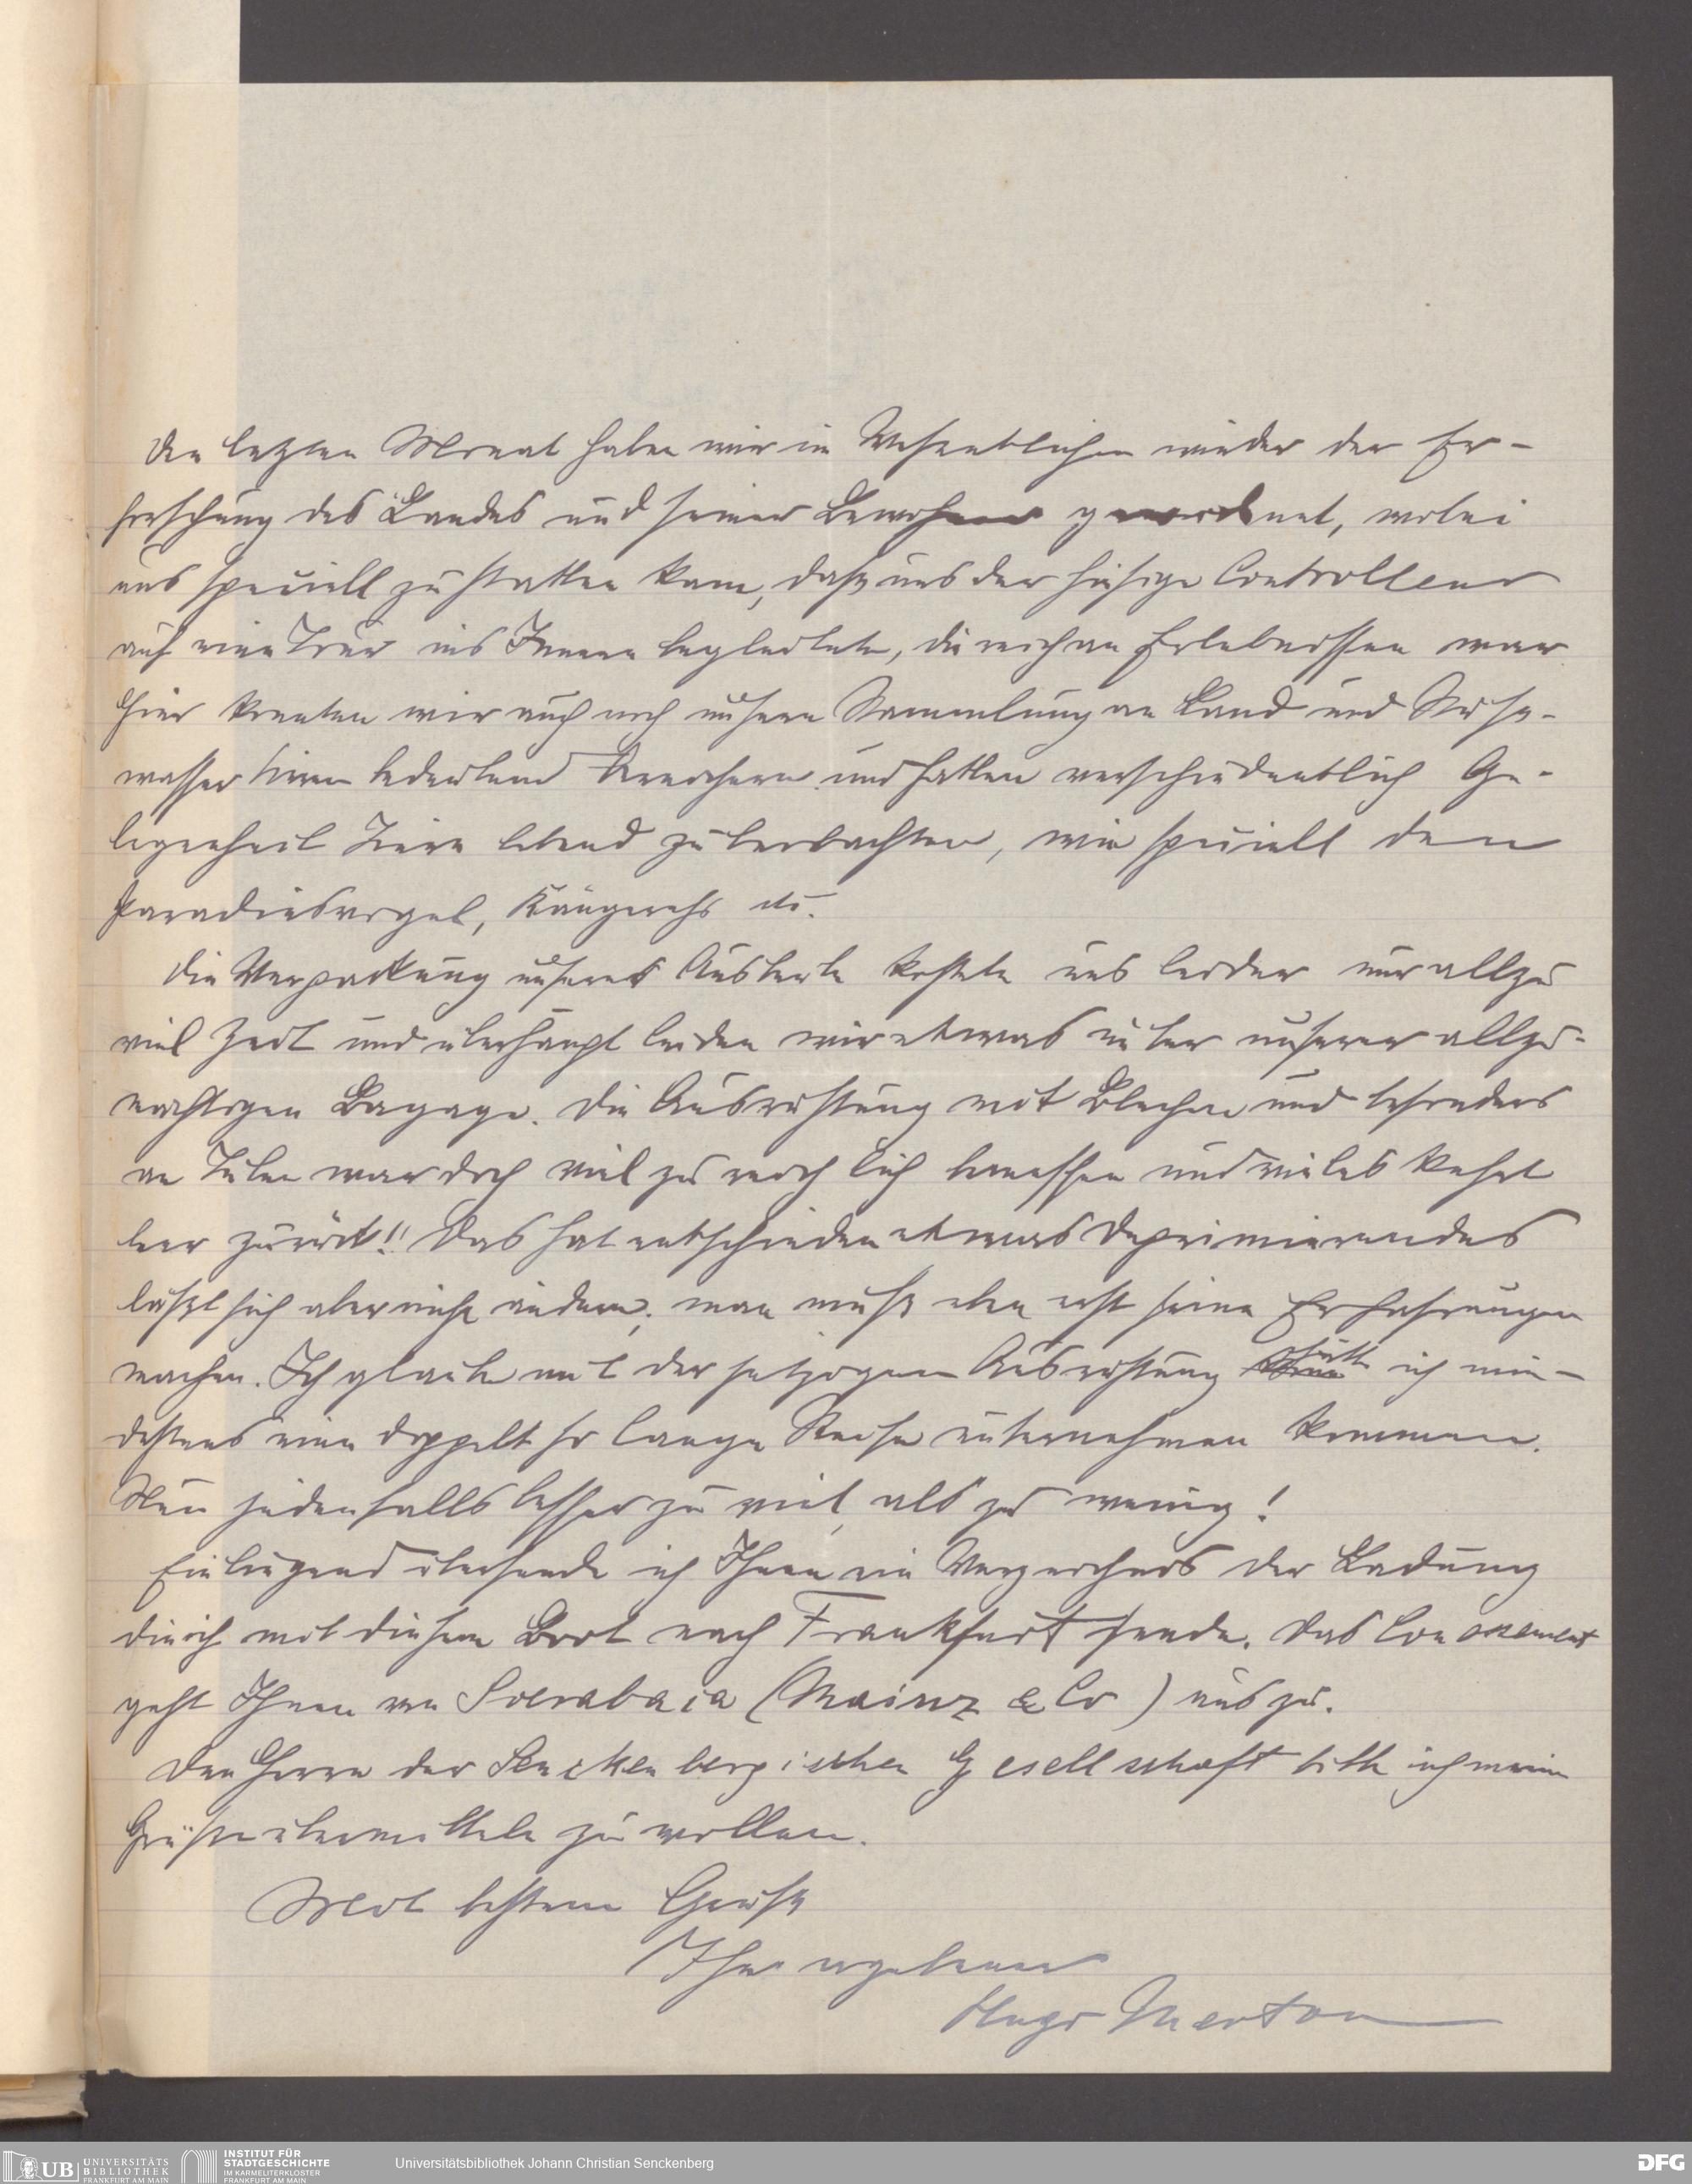 Den letzten Monat haben wir im Wesentlichen wieder der Er-
forschung des Landes und seiner Bewohner gewidmet, wobei
uns speciell zu statten kam, dass uns der hiesige Controlleur
auf eine Tour ins Innere begleitete, die reich an Erlebnissen war
Hier konnten wir auch noch unsere Sammlung an Land und Süss-
wassertieren bedeutend bereichern und hatten verschiedentlich Ge-
legenheit Tiere lebend zu beobachten, wie speciell den
Paradiesvogel, Känguruhs etc.
Die Verpackung unserer Ausbeute kostete uns leider nur allzu
viel Zeit und überhaupt leiden wir etwas unter unserer allzu-
mächtigen Bagage. Die Ausrüstung mit Blechen und besonders
an Tuben war doch viel zu reichlich bemessen und vieles kehrt
leer zurück! Das hat entschieden etwas Deprimierendes
lässt sich aber nicht ändern; man muss eben erst seine Erfahrungen
machen. Ich glaube mit der jetzigen Ausrüstung hätte ich min-
destens eine doppelt so lange Reise unternehmen können.
Nun jedenfalls besser zu viel, als zu wenig!
Einliegend übersende ich Ihnen ein Verzeichnis der Ladung
die ich mit diesem Boot nach Frankfurt sende. Das Conossement
geht Ihnen von Soerabaia (Mainz & Co) aus zu.
Den Herren der Senckenbergischen Gesellschaft bitte ich meine
Grüsse übermitteln zu wollen.
Mit bestem Gruss
Ihr ergebener
Hugo Merton
UB UNIVERSITÄTS
BIBLIOTHEK
FRANKFURT AM MAIN
INSTITUT FÜR
STADTGESCHICHTE
IM KARMELITERKLOSTER
FRANKFURT AM MAIN
Universitätsbibliothek Johann Christian Senckenberg
DFG